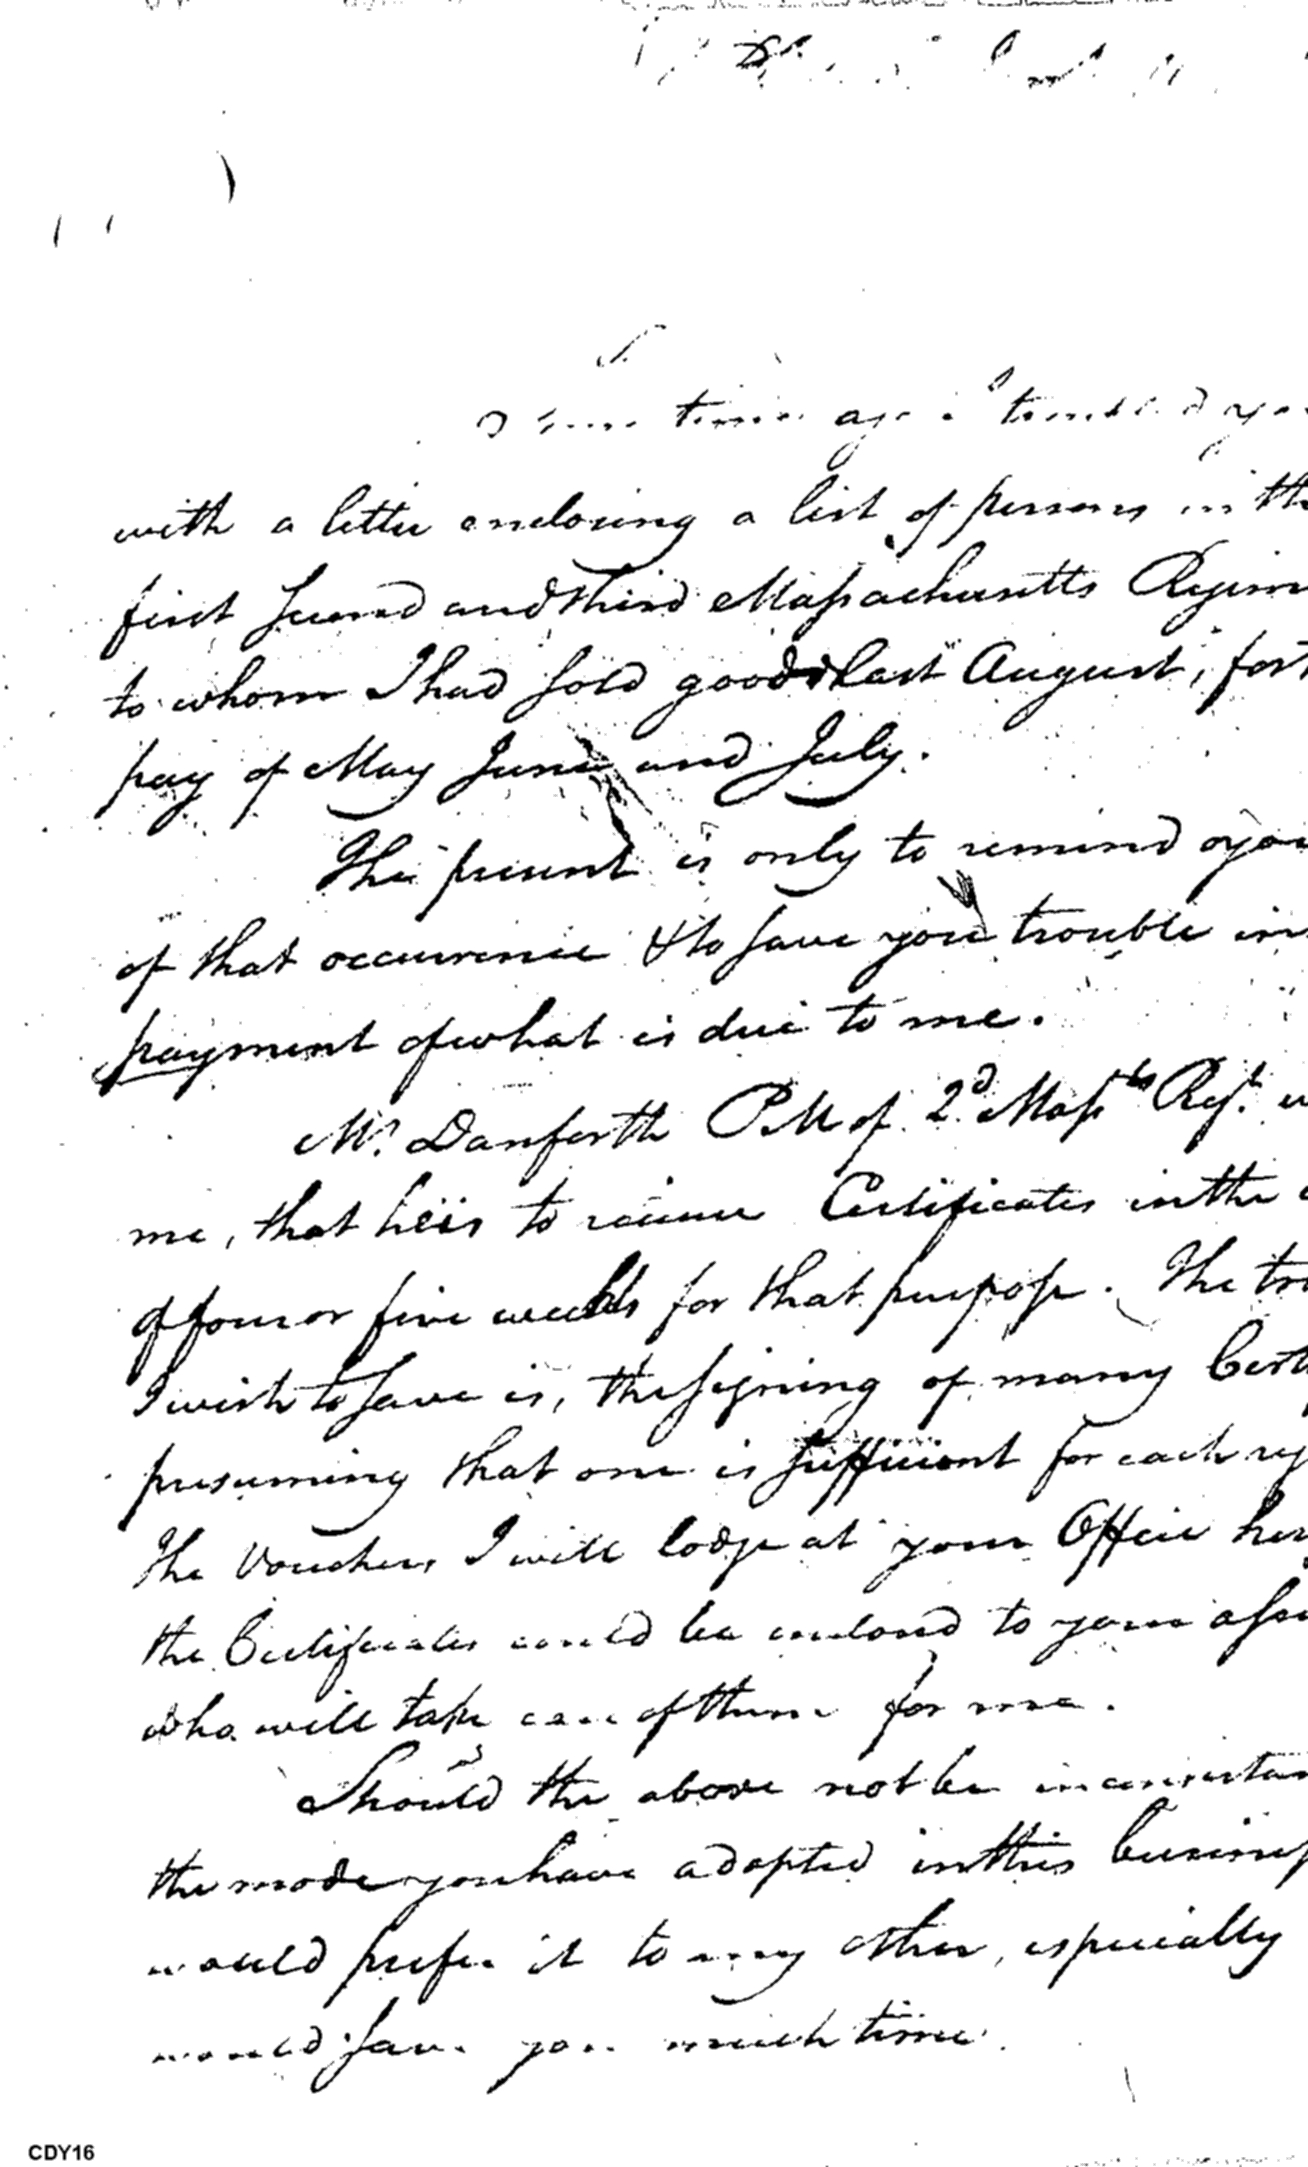 Some time ago I troubled you
with a letter enclosing a list of persons in the
first second and third Massachusetts Regim
to whom I had sold goods last August, for t
pay of May June and July.
The present is only to remind you
of that occurrence & to save you trouble in
payment of what is due to me.
Mr. Danforth P.M of 2d. Massts Regt.
me, that he is to receive Certificates in the
of four or five weeks for that purpose. The tro
I wish to save is, the signing of many Certi
presuming that one is sufficient for each reg
The Vouchers I will lodge at your Office her
the Certificates could be enclosed to your assi
who will take care of them for me.
Should the above not be inconsistan
the mode you have adopted in this business
would prefer it to any other, especially
would save you much time.
CDY16